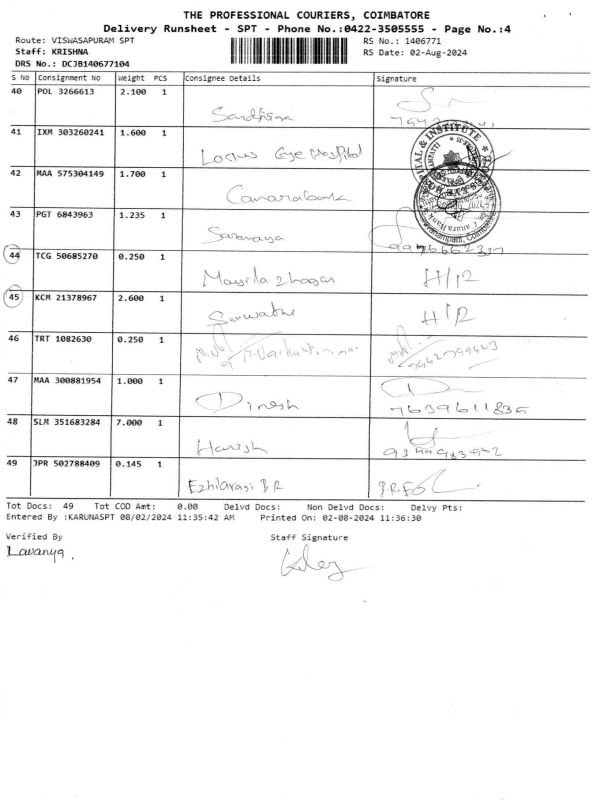 THE PROFESSIONAL COURIERS, COIMBATORE
Delivery Runsheet - SPT - Phone No.:0422-3505555 - Page No.:4
Route: VISWASAPURAM SPT RS No.: 1406771
Staff: KRISHNA RS Date: 02-Aug-2024
DRS No.: DCJB140677104
S No Consignment No Weight PCS Consignee Details Signature
40 POL 3266613 2.100 1
Sandhina
41 IXM 303260241 1.600 1
Lotus Eye Hospital
42 MAA 575304149 1.700 1
Canarabank
43 PGT 6843963 1.235 1
Saranaya
44 TCG 50685270 0.250 1
Mayila zhagan H/12
45 KCM 21378967 2.600 1
Sarwathi H/12
46 TRT 1082630 0.250 1
47 MAA 300881954 1.000 1
Dinesh 7639611835
48 SLM 351683284 7.000 1
Haresh
49 JPR 502788409 0.145 1
Ezhilarasi B R
Tot Docs: 49 Tot COD Amt: 0.00 Delvd Docs: Non Delvd Docs: Delvy Pts:
Entered By :KARUNASPT 08/02/2024 11:35:42 AM Printed On: 02-08-2024 11:36:30
Verified By Staff Signature
Lavanya.